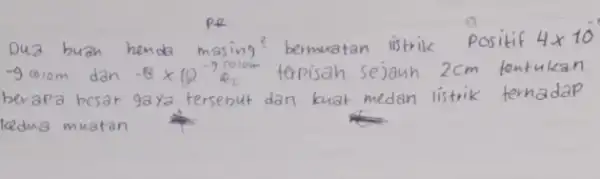 PR
Dua buah benda masing² bermuatan listrik Positif 4 x 10
-9 colom dan -8 x 10 -9 colom terpisah sejauh 2cm tentukan
berapa besar gaya tersebut dan kuat medan listrik terhadap
kedua muatan